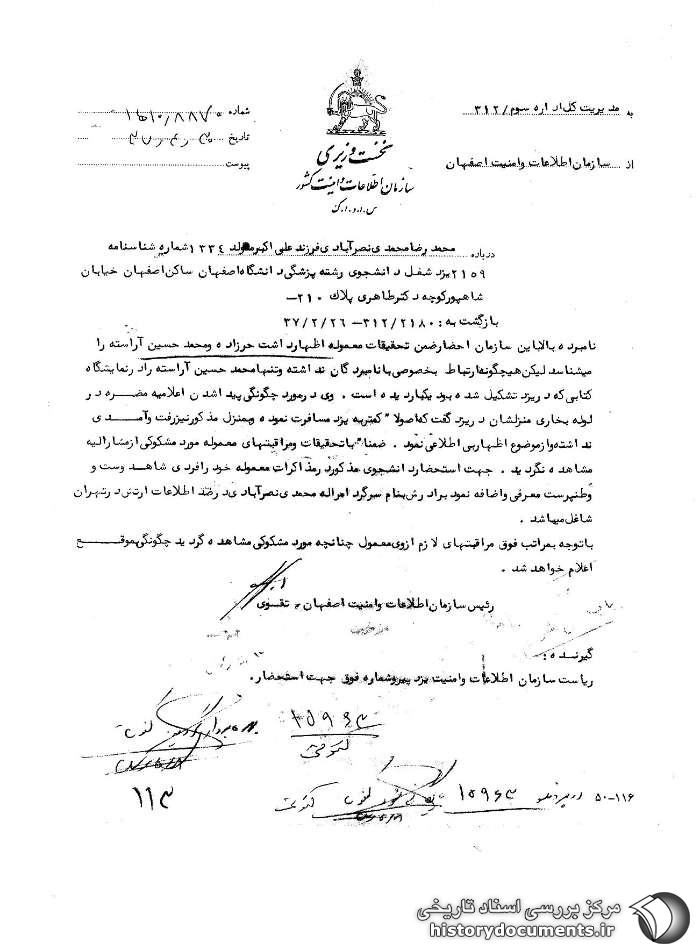 به مدیریت کل اداره سوم/۳۱۲
از سازمان اطلاعات و امنیت اصفهان
نخست وزیری
سازمان اطلاعات و امنیت کشور
س.ا.و.ا.ک
شماره
تاریخ
پیوست
درباره محمد رضا محمدی نصرآبادی فرزند علی اکبر متولد ۱۳۳٤ شماره شناسنامه
۲۱۵۹ یزد شغل دانشجوی رشته پزشگی دانشگاه اصفهان ساکن اصفهان خیابان
شاهپور کوچه دکتر طاهری پلاک ۲۱۰-
بازگشت به: ۳۱۲/۲۱۸۰-۳۷/۲/۲۶
نامبرده بالا باین سازمان احضار ضمن تحقیقات معموله اظهار داشت حرزاده و محمد حسین آراسته را
میشناسد لیکن هیچگونه ارتباط بخصوصی با نامبردگان نداشته و تنها محمد حسین آراسته را در نمایشگاه
کتابی که در یزد تشکیل شده بود یکبار دیده است. وی در مورد چگونگی پیدا شدن اعلامیه مضره در
لوله بخاری منزلشان در یزد گفت که اصولا" کمتر به یزد مسافرت نموده و بمنزل مذکور نیز رفت و آمدی
نداشته و از موضوع اظهار بی اطلاعی نمود. ضمنا" با تحقیقات و مراقبتهای معموله مورد مشکوکی از مشارالیه
مشاهده نگردید. جهت استحضار دانشجوی مذکور در مذاکرات معموله خود را فردی شاهدوست و
وطنپرست معرفی و اضافه نمود برادرش بنام سرگرد امراله محمدی نصرآبادی در ضد اطلاعات ارتش در تهران
شاغل میباشد.
با توجه بمراتب فوق مراقبتهای لازم از وی معمول چنانچه مورد مشکوکی مشاهده گردید چگونگی بموقع
اعلام خواهد شد.
رئیس سازمان اطلاعات و امنیت اصفهان - تقوی
گیرنده:
ریاست سازمان اطلاعات و امنیت یزد پیرو شماره فوق جهت استحضار.
۱۵۹۶۳
۱۱۳
۵۰-۱۱۶ در پرونده ۱۵۹۶۳
مرکز بررسی اسناد تاریخی
historydocuments.ir